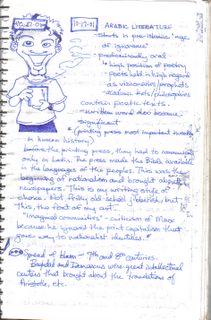 10-17-01
ARABIC LITERATURE
- starts in pre-Islamic "age
of ignorance"
- predominantly oral
* high position of poetry
- poets held in high regard
as visionaries/prophets
contain poetic texts.
- written word also became
significant
* (printing press most important invention
in human history)
before the printing press, they had to communicate
only in Latin. The press made the Bible available
in the languages of the people. This was the
beginning of nationalism and brought about
newspapers. This is my writing style of
choice. Not Friday old school, but
this, the font of my art.
"Imagined communities" - criticism of Marx
because he ignored the print capitalism that
gave way to nationalist identities.
Spread of Islam - 7th and 8th centuries.
Baghdad and Damascus were great intellectual
centers that brought about the translations of
Aristotle, etc.